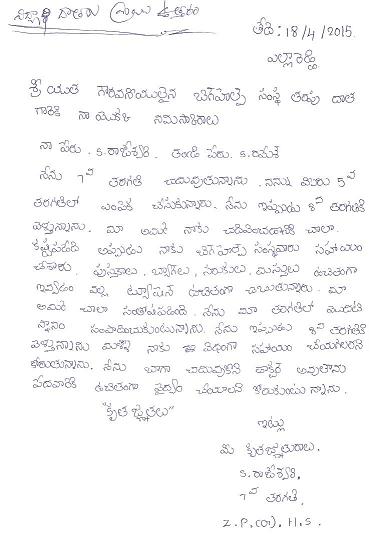 విద్యార్థి దాతకు రాయు ఉత్తరం
తేది: 18/4/2015.
ఎల్లారెడ్డి
శ్రీయుత గౌరవనీయులైన బిగ్‌హెల్ప్ సంస్థ తరపు దాత
గారికి నా యొక్క నమస్కారాలు
నా పేరు. S. రాజేశ్వరి. తండ్రి పేరు. S. రమేశ్
నేను 7వ తరగతి చదువుతున్నాను. నన్ను మీరు 5వ
తరగతిలో ఎంపిక చేసుకున్నారు. నేను ఇప్పుడు 8వ తరగతికి
వెళ్తున్నాను. మా అమ్మకి నాకు చదివించడానికి చాలా.
కష్టపడేది అప్పుడు నాకు బిగ్‌హెల్ప్ సంస్థవారు సహాయం
చేశారు. పుస్తకాలు. బ్యాగ్‌లు, సరుకులు, మిస్తులు ఉచితంగా
ఇవ్వడం వల్ల ట్యూషన్ ఉచితంగా చెబుతున్నారు. మా
అమ్మకి చాలా సంతోషపడింది. నేను మా తరగతిలో మొదటి
స్థానం సంపాదించుకుంటున్నాను. నేను ఇప్పుడు 8వ తరగతికి
వెళ్తున్నాను మళ్ళీ నాకు ఈ విధంగా సహాయం చేయగలరని
కోరుతున్నాను. నేను బాగా చదువుకొని డాక్టర్ అవుతాను
పేదవారికి ఉచితంగా వైద్యం చేయాలని కోరుకుంటున్నాను.
"కృతజ్ఞతలు"
ఇట్లు
మీ కృతజ్ఞతురాలు.
S. రాజేశ్వరి,
7వ తరగతి,
Z.P.(G). H.S.